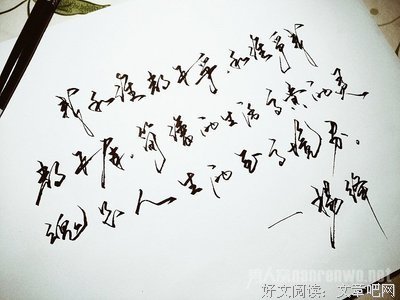 我和谁都不争.和谁争我
都不屑.简朴的生活高贵的灵
魂是人生的至高境界.
—杨绛
nanrenwo.net
好文阅读：文章吧网